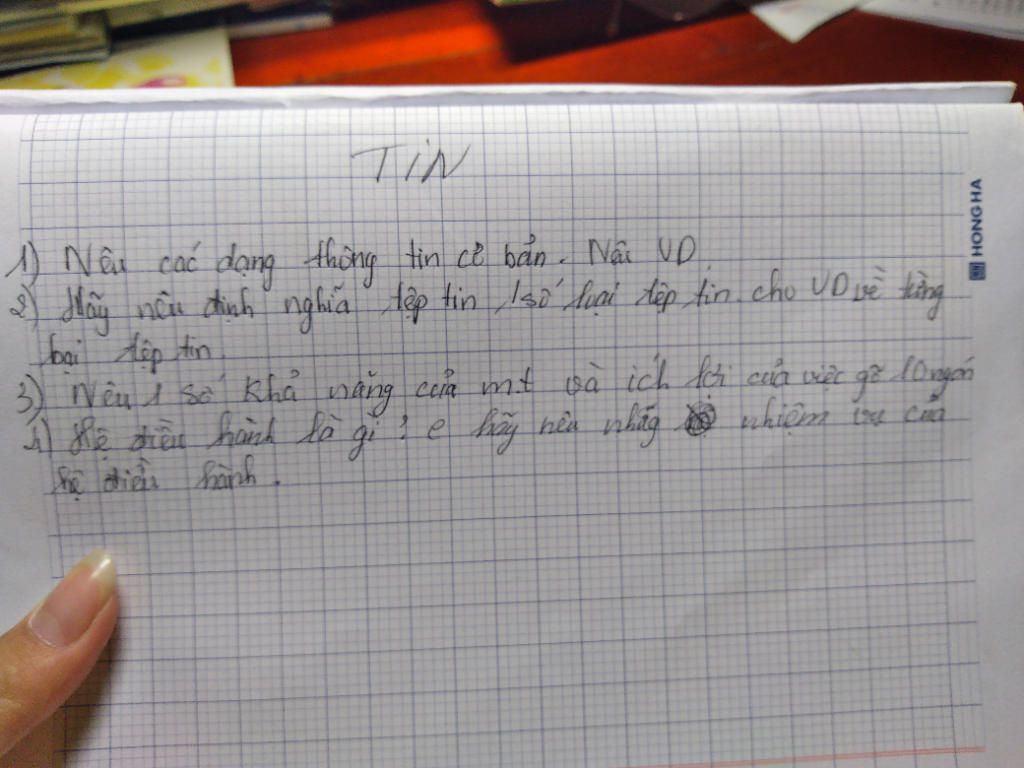 TiN
HONG HA
1) Nêu các dạng thông tin cơ bản. Nêu VD
2) Hãy nêu định nghĩa tệp tin 1 số loại tệp tin. cho VD về từng
loại tệp tin.
3) Nêu 1 số khả năng của mt và ích lợi của việc gõ 10 ngón
4) Hệ điều hành là gì? e hãy nêu nhữg nhiệm vụ của
hệ điều hành.